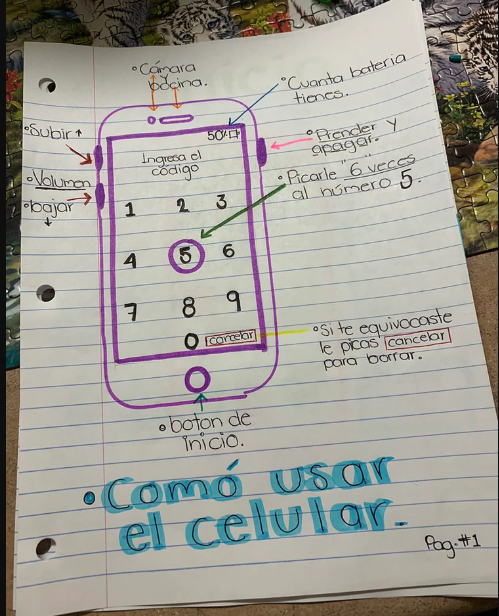 •Cámara
y
bocina.
•Cuanta bateria
tienes.
50%
•Subir↑
•Prender y
apagar.
Ingresa el
código
•Volumen
•bajar
↓
•Picarle "6 veces
al número 5.
1 2 3
4 5 6
7 8 9
0 cancelar
•Si te equivocaste
le picas cancelar
para borrar.
•boton de
inicio.
•Comó usar
el celular.
Pag.#1